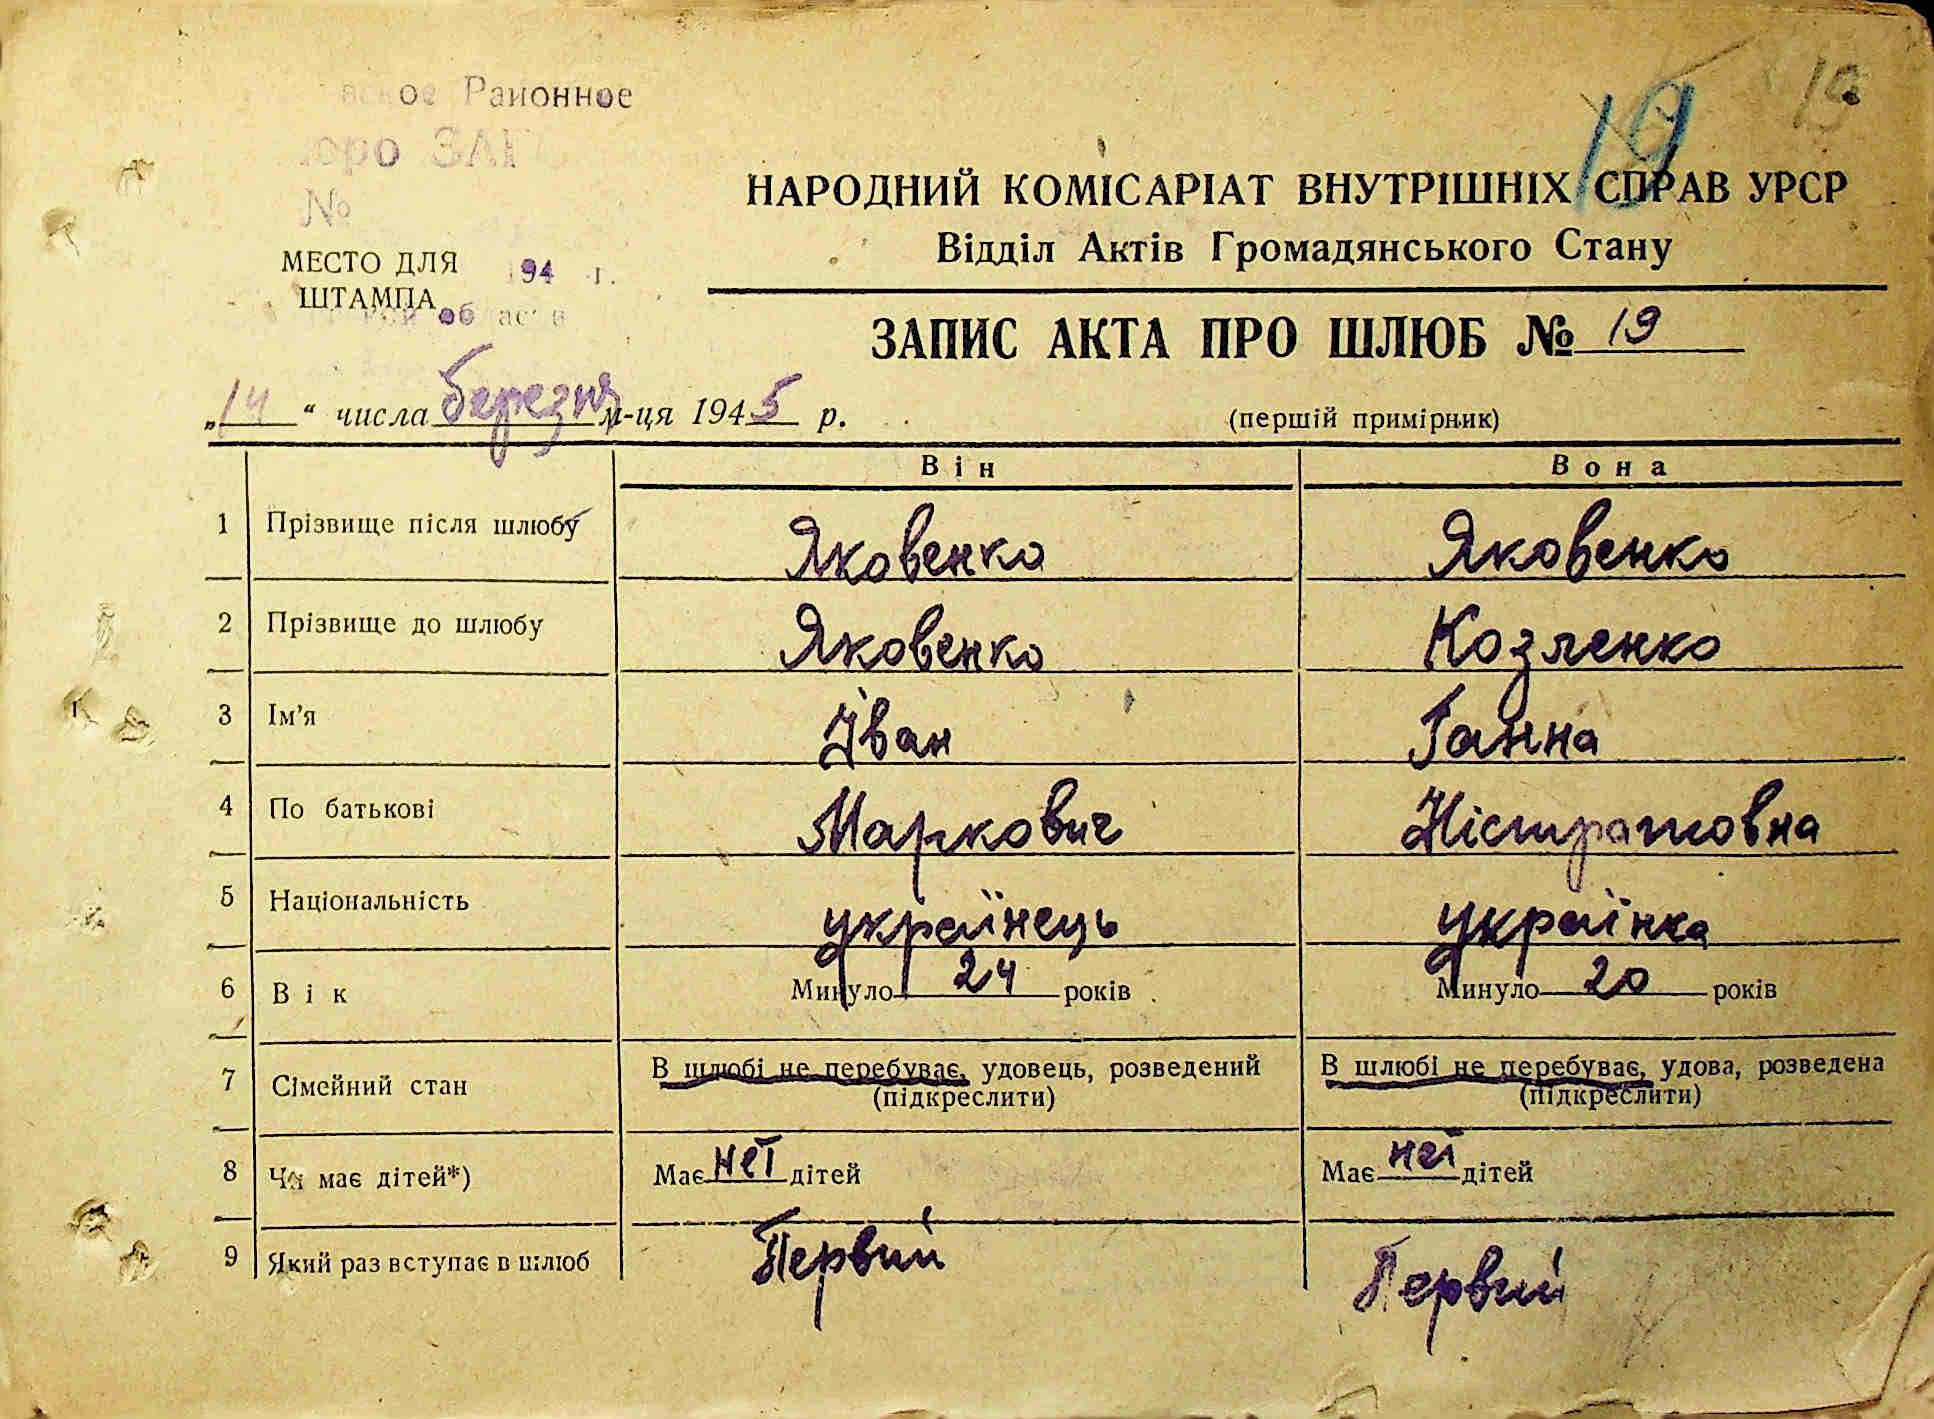 19
19
Районное
№
МЕСТО ДЛЯ
ШТАМПА
194 г.
НАРОДНИЙ КОМІСАРІАТ ВНУТРІШНІХ СПРАВ УРСР
Відділ Актів Громадянського Стану
ЗАПИС АКТА ПРО ШЛЮБ № 19
„14“ числа березня м-ця 1945 р.
(першій примірник)
Він Вона
1 Прізвище після шлюбу Яковенко Яковенко
2 Прізвище до шлюбу Яковенко Козленко
3 Ім'я Іван Ганна
4 По батькові Маркович Ністратовна
5 Національність українець українка
6 Вік Минуло 24 років Минуло 20 років
7 Сімейний стан В шлюбі не перебуває, удовець, розведений В шлюбі не перебуває, удова, розведена
(підкреслити) (підкреслити)
8 Чи має дітей*) Має неї дітей Має неї дітей
9 Який раз вступає в шлюб Первий Первий